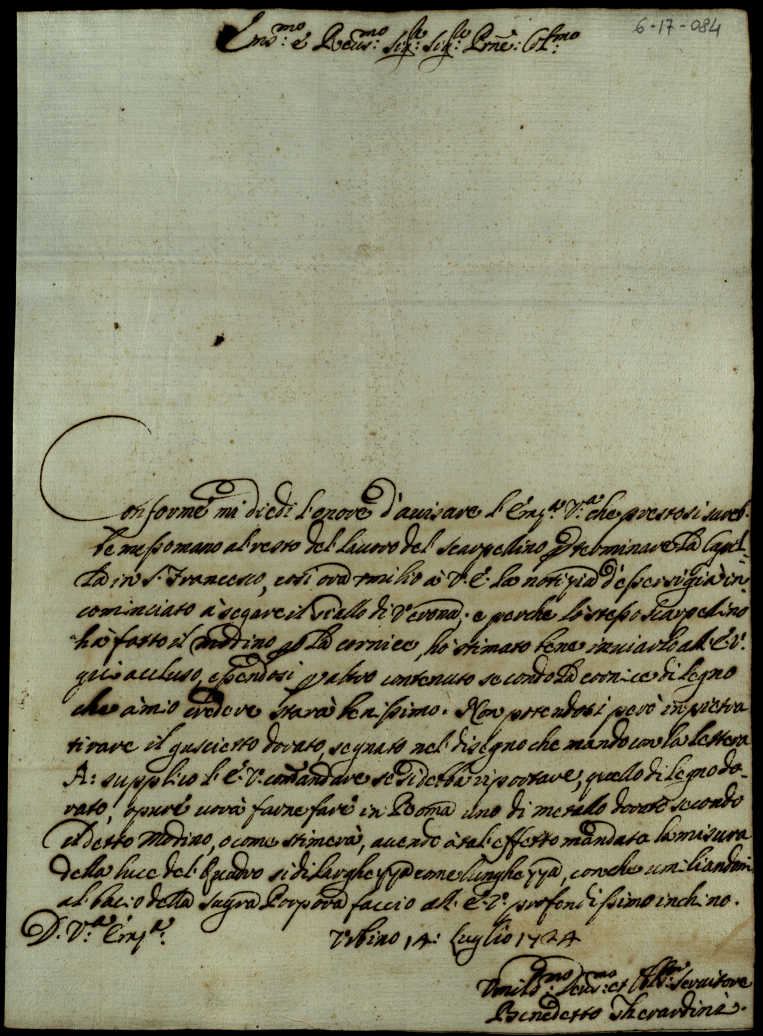 6-17-084
Em.mo e Reu.mo Sig.re Sig.re Prne: Col.mo
Conforme mi diedi l'onore d'auisare l'Em.za V.ra che presto si sareb-
be messo mano al resto del lauoro del scarpellino p terminare la Capel-
la in S. Francesco, così ora umilio à V.E. la notizia d'essersi già in
cominciato à segare il giallo di Verona; e perche lo stesso scarpellino
hà fatto il modino p la cornice, hò stimato bene inuiarlo all'E.V.
qui accluso, essendosi p altro contenuto secondo la cornice di legno
che à mio credere starà benissimo. Non potendosi però in pietra
tirare il guscietto dorato, segnato nel disegno che mando con la lettera
A: supplico l'E.V. comandare se si debba riportare, quello di legno do-
rato, ò pure uorà farne fare in Roma uno di metallo dorato secondo
il detto Modino, o come stimerà, auendo à tal effetto mandata la misura
della luce del Quadro si di larghezza come lunghezza, con che umiliandomi
al bacio della Sagra Porpora faccio all'E.V. profondissimo inchino.
D. V.ra Em.za
Vrbino 14: Luglio 1724
Vmilis.mo Deu.mo et Obl.mo Seruitore
Benedetto Gherardini.